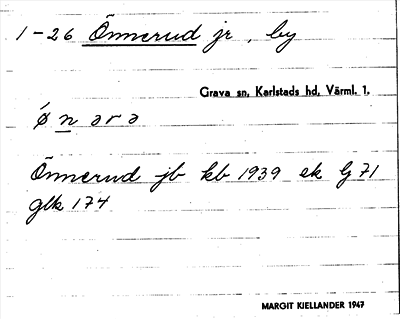 1-26 Önnerud jr, by
Grava sn, Karlstads hd, Värml. l.
ǿn ərə
Önnerud jb kb 1939 ek G 71
glk 174
MARGIT KJELLANDER 1947